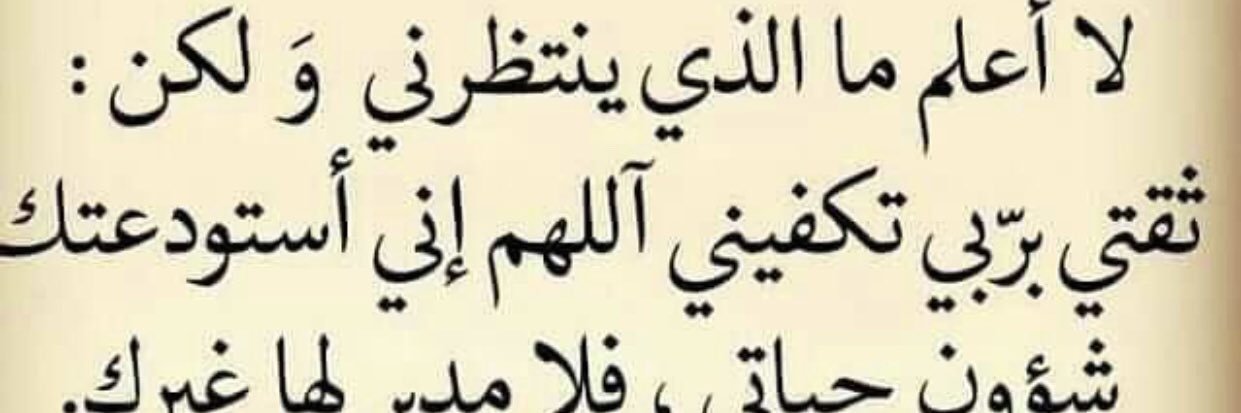 لا أعلم ما الذي ينتظرني وَ لكن :
ثقتي برّبي تكفيني آللهم إني أستودعتك
شؤون حياتي ، فلا مدبر لها غيرك.